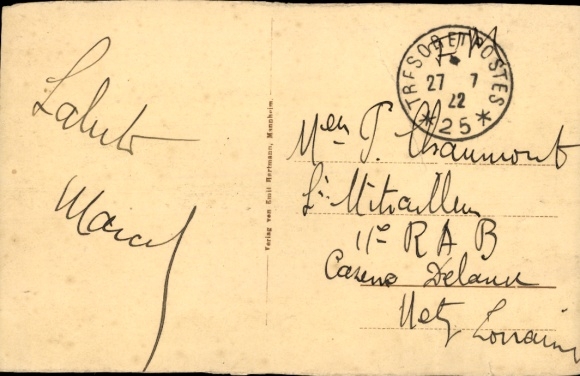 Saluts
Marcel
Verlag von Emil Hartmann, Mannheim.
TRESOR ET POSTES
27 7
22
* 25 *
FM
P. Chaumont
Mitrailleur
11e R A B
Caserne
Metz Lorraine